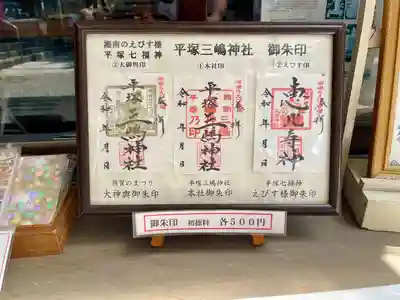 湘南のえびす様
平塚七福神
平塚三嶋神社 御朱印
③大御輿印
①本社印
②えびす印
奉拝
平塚三嶋神社
令和 年 月 日
奉拝
平塚三嶋神社
令和 年 月 日
奉拝
恵比寿神
令和 年 月 日
須賀のまつり
大神輿御朱印
平塚三嶋神社
本社御朱印
平塚七福神
えびす様御朱印
御朱印 初穂料 各500円